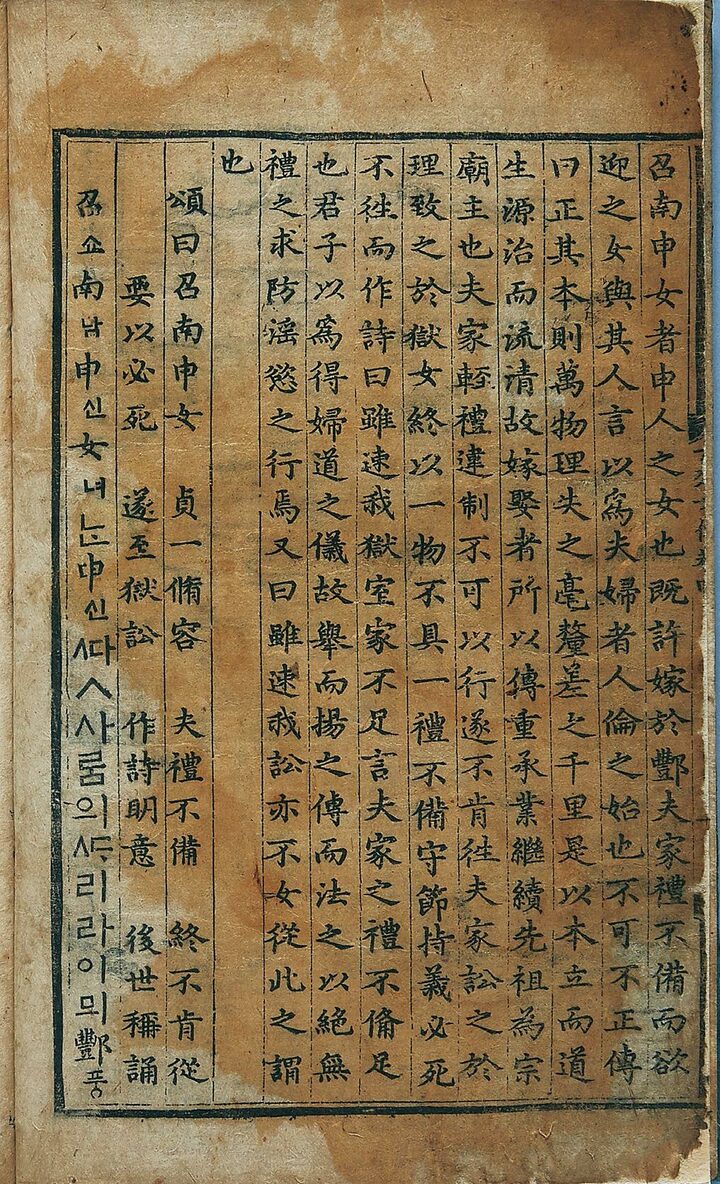 召南申女者申人之女也既許嫁於酆夫家禮不備而欲
迎之女與其人言以爲夫婦者人倫之始也不可不正傳
曰正其本則萬物理失之毫釐差之千里是以本立而道
生源治而流清故嫁娶者所以傳重承業繼續先祖為宗
廟主也夫家輕禮違制不可以行遂不肯徃夫家訟之於
理致之於獄女終以一物不具一禮不備守節持義必死
不徃而作詩曰雖速我獄室家不足言夫家之禮不備足
也君子以爲得婦道之儀故舉而揚之傳而法之以絕無
禮之求防淫慾之行焉又曰雖速我訟亦不女從此之謂
也
頌曰召南申女 貞一脩容 夫禮不備 終不肯從
要以必死 遂至獄訟 作詩明意 後世稱誦
召쇼南남申신女녀ᄂᆞᆫ申신ᄯᅡㅅ사ᄅᆞᆷ의ᄯᆞ리라이믜酆풍